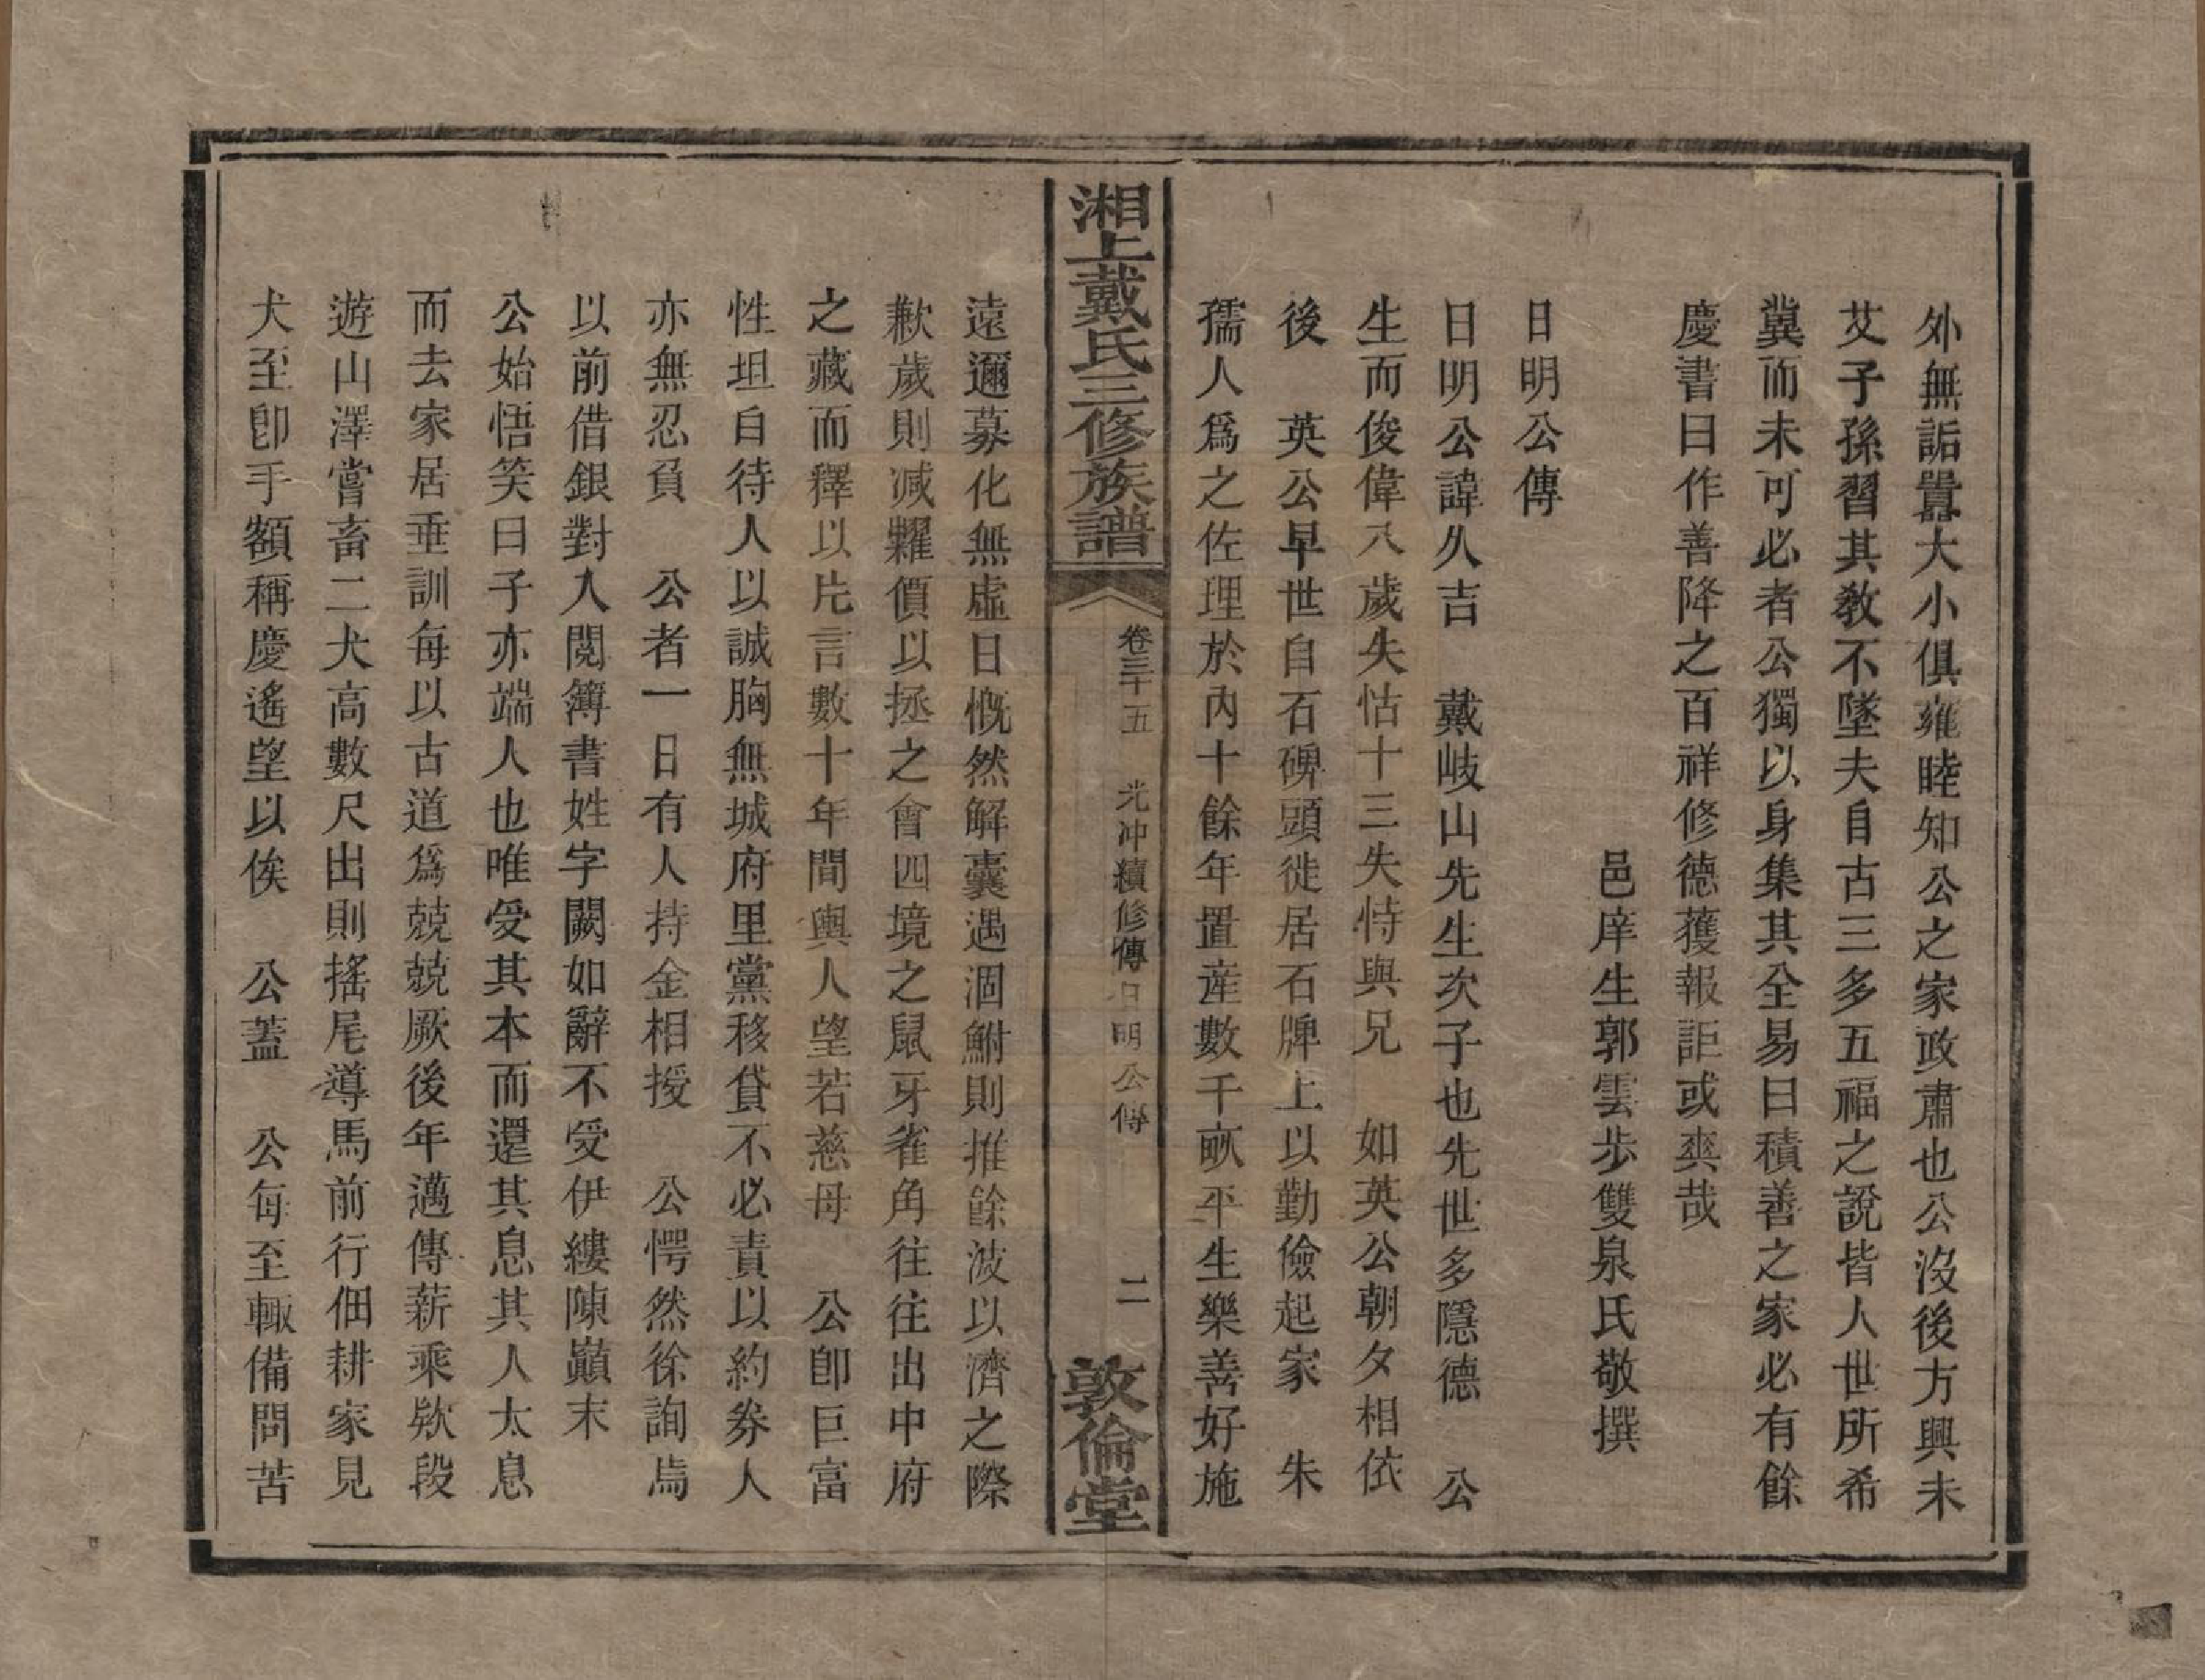 外無詬囂大小俱雍睦知公之家政肅也公沒後方興未
艾子孫習其敎不墜夫自古三多五福之說皆人世所希
冀而未可必者公獨以身集其全易曰積善之家必有餘
慶書曰作善降之百祥修德獲報詎或爽哉
邑庠生郭雲步雙泉氏敬撰
日明公傳
日明公諱久吉 戴岐山先生次子也先世多隱德 公
生而俊偉八歲失怙十三失恃與兄 如英公朝夕相依
後 英公早世自石碑頭徙居石牌上以勤儉起家 朱
孺人爲之佐理於內十餘年置産數千畝平生樂善好施
湘上戴氏三修族譜
卷三十五 光冲續修傳 日明公傳
二
敦倫堂
遠邇募化無虛日慨然解囊遇涸鮒則推餘波以濟之際
歉歲則減糶價以拯之會四境之鼠牙雀角往往出中府
之藏而釋以片言數十年間輿人望若慈母 公卽巨富
性坦白待人以誠胸無城府里黨移貸不必責以約券人
亦無忍負 公者一日有人持金相授 公愕然徐詢焉
以前借銀對入閱簿書姓字闕如辭不受伊縷陳巔末
公始悟笑曰子亦端人也唯受其本而還其息其人太息
而去家居垂訓每以古道爲兢兢厥後年邁傳薪乘欵段
遊山澤嘗畜二犬高數尺出則搖尾導馬前行佃耕家見
犬至卽手額稱慶遙望以俟 公蓋 公每至輒備問苦